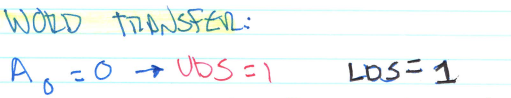 WORD TRANSFER:
A₀ = 0 → UDS = 1 LDS = 1